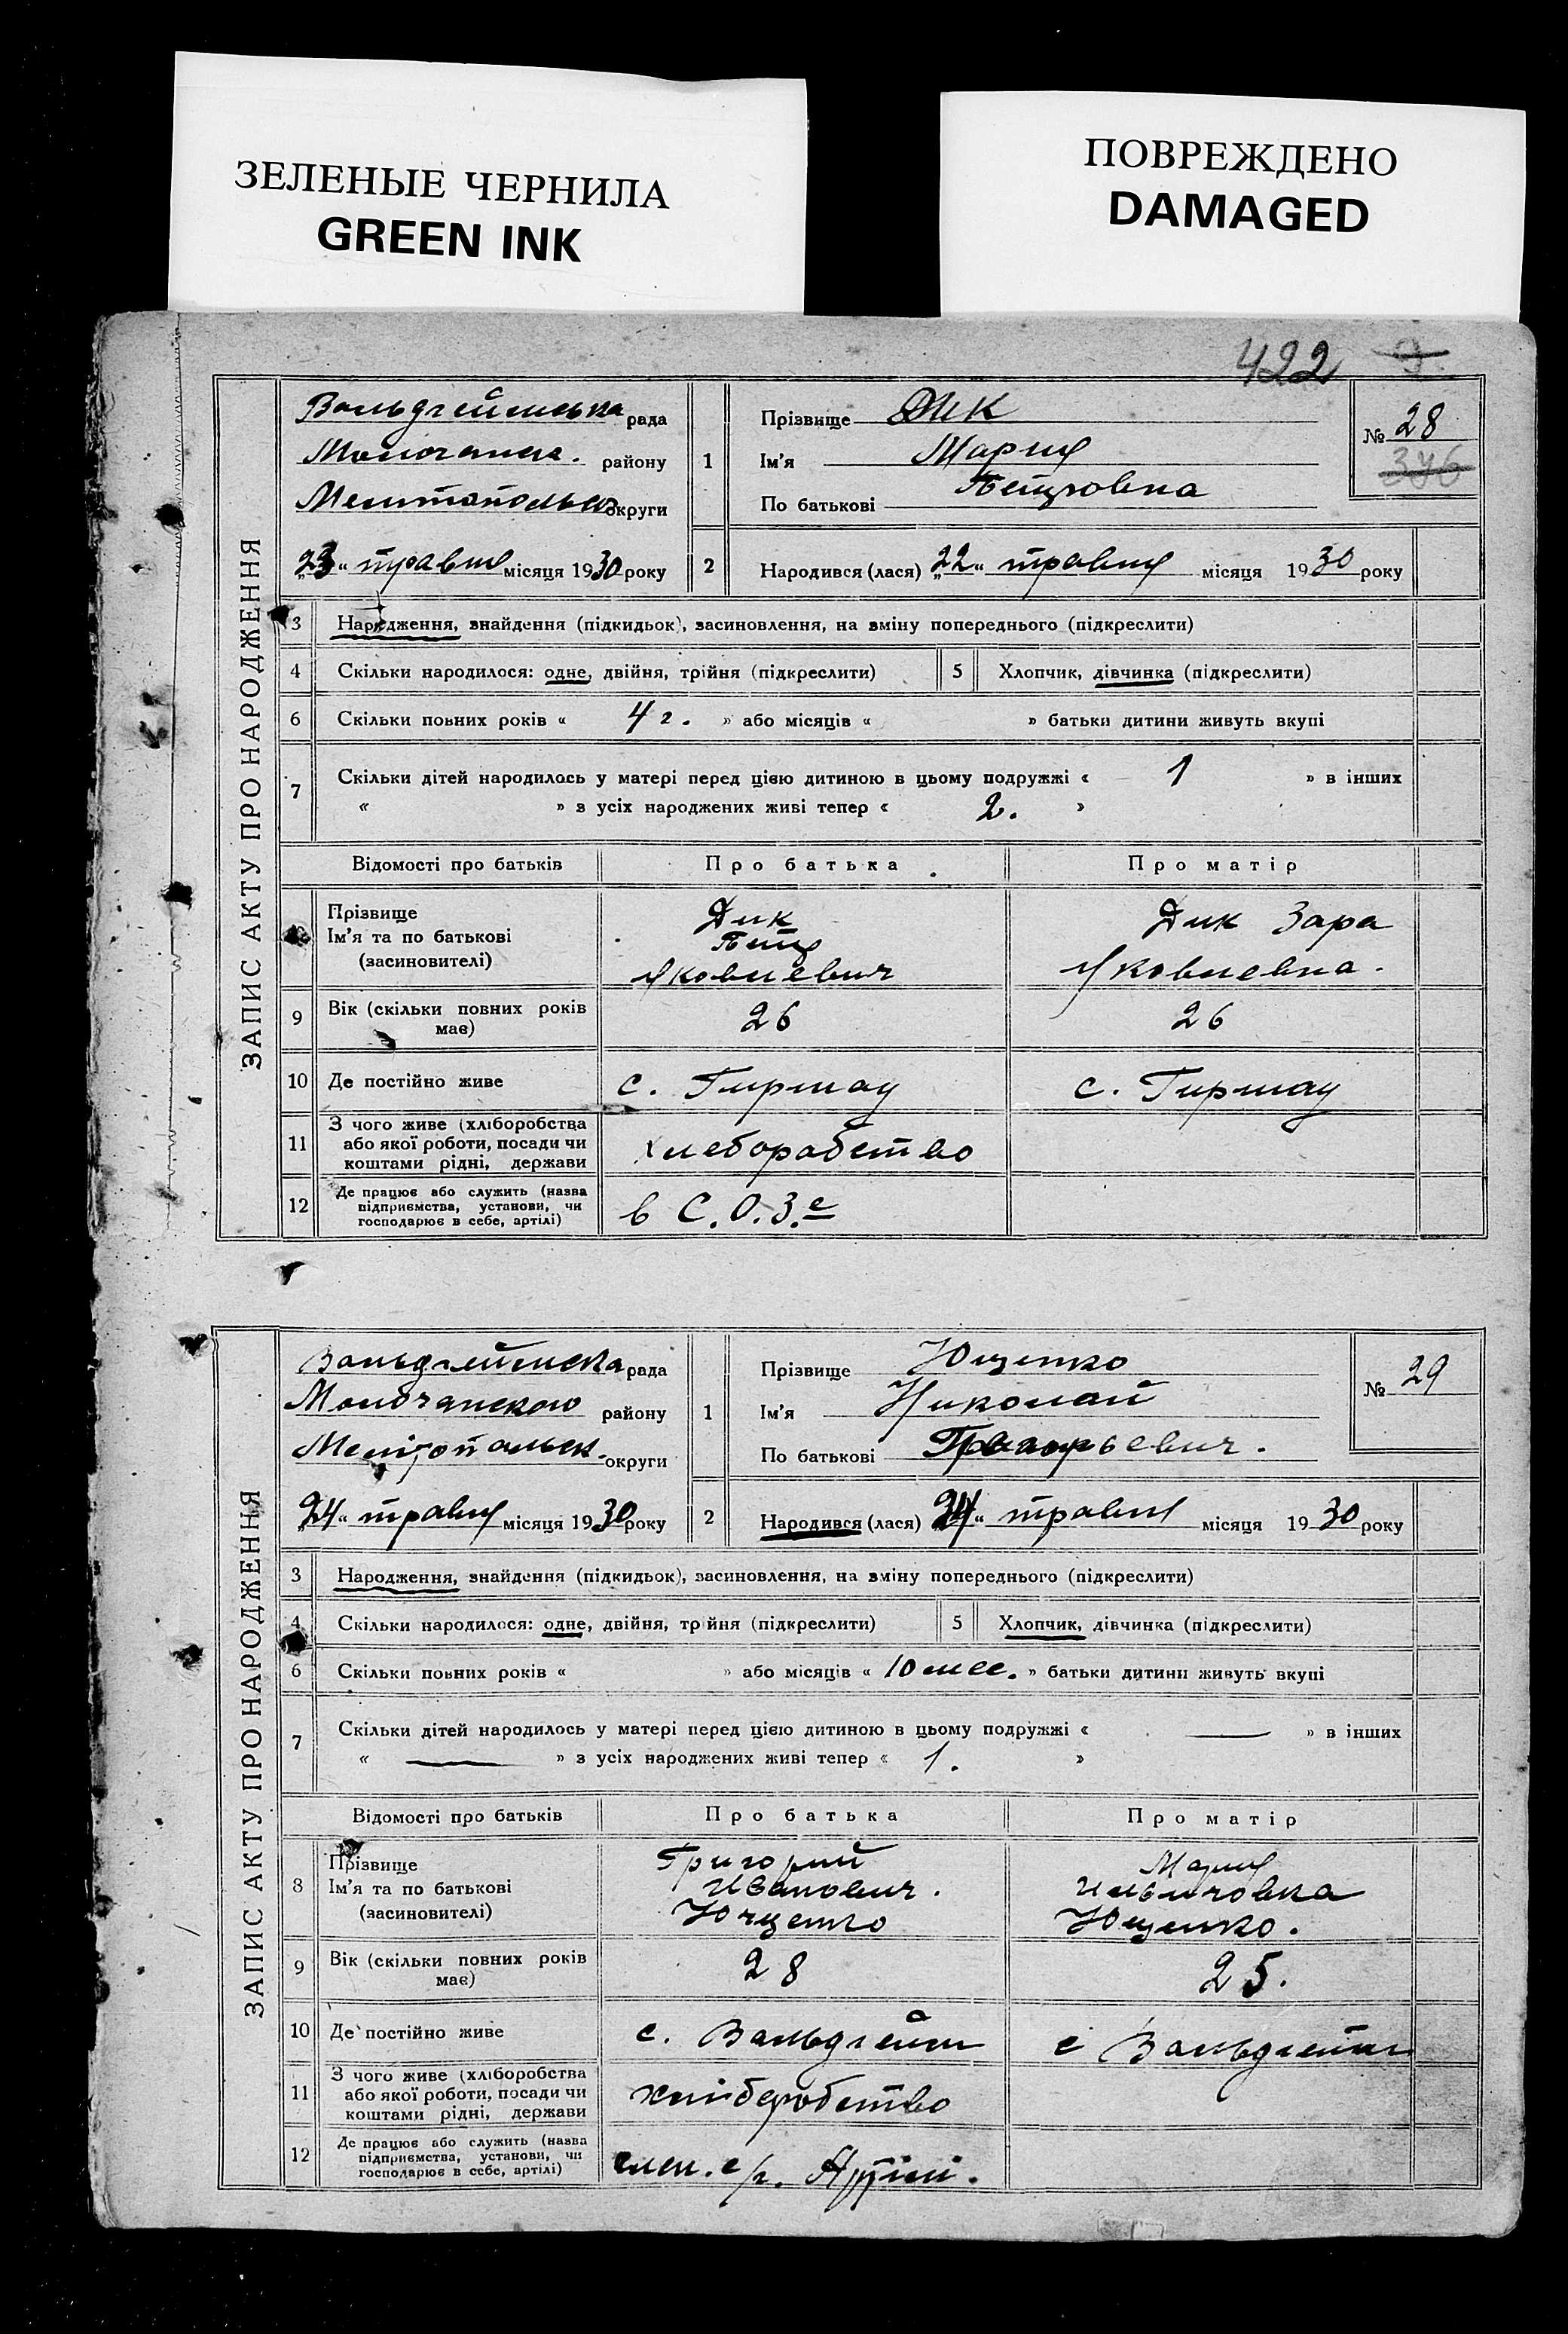 ЗЕЛЕНЫЕ ЧЕРНИЛА
GREEN INK
ПОВРЕЖДЕНО
DAMAGED
422 9
ЗАПИС АКТУ ПРО НАРОДЖЕННЯ
Вальдгеймська рада
Молочанск. району
округи
„23“ травня місяця 1930 року
1
Прізвище Дик
Ім’я Мария
По батькові Петровна
№ 28
346
2
Народився (лася) „22“ травня місяця 1930 року
3 Народження, знайдення (підкидьок), засиновлення, на зміну попереднього (підкреслити)
4 Скільки народилося: одне, двійня, трійня (підкреслити) 5 Хлопчик, дівчинка (підкреслити)
6 Скільки повних років « 4 г. » або місяців « » батьки дитини живуть вкупі
7 Скільки дітей народилось у матері перед цією дитиною в цьому подружжі « 1 » в інших
« » з усіх народжених живі тепер « 2. »
Відомості про батьків Про батька Про матір
Прізвище
Ім’я та по батькові
(засиновителі)
Дик
Петр
Яковлевич
Дик Зара
Яковлевна.
9 Вік (скільки повних років має) 26 26
10 Де постійно живе с. Гиршау с. Гиршау
11 З чого живе (хліборобства або якої роботи, посади чи коштами рідні, держави хлеборабство
12 Де працює або служить (назва підприємства, установи, чи господарює в себе, артілі) в С.О.З.е
ЗАПИС АКТУ ПРО НАРОДЖЕННЯ
Вальдгеймска рада
Молочанского району
Мелітопольск. округи
„24“ травня місяця 1930 року
1
Прізвище Ющенко
Ім’я Николай
По батькові
№ 29
2
Народився (лася) „24“ травня місяця 1930 року
3 Народження, знайдення (підкидьок), засиновлення, на зміну попереднього (підкреслити)
4 Скільки народилося: одне, двійня, трійня (підкреслити) 5 Хлопчик, дівчинка (підкреслити)
6 Скільки повних років « » або місяців « 10 мес. » батьки дитини живуть вкупі
7 Скільки дітей народилось у матері перед цією дитиною в цьому подружжі « — » в інших
« — » з усіх народжених живі тепер « 1. »
Відомості про батьків Про батька Про матір
8 Прізвище
Ім’я та по батькові
(засиновителі)
Григорий
Иванович.
Ющенко
Мария
Ющенко.
9 Вік (скільки повних років має) 28 25.
10 Де постійно живе с. Вальдгейм с Вальдгейм
11 З чого живе (хліборобства або якої роботи, посади чи коштами рідні, держави
12 Де працює або служить (назва підприємства, установи, чи господарює в себе, артілі) член. с/г. Артілі.